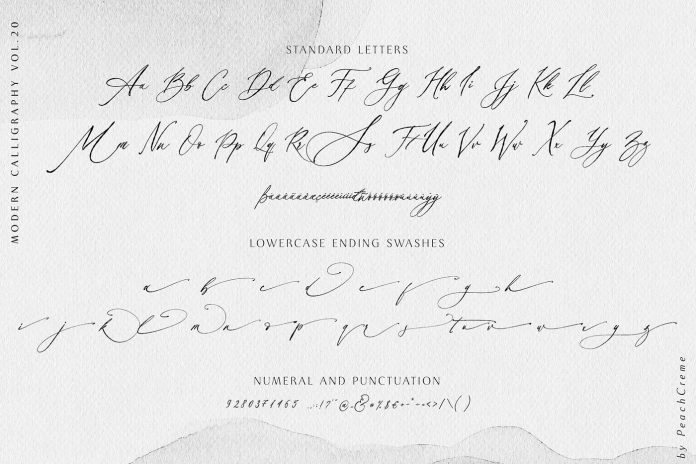 MODERN CALLIGRAPHY VOL.20
STANDARD LETTERS
Aa Bb Cc Dd Ee Ff Gg Hh Ii Jj Kk Ll
Mm Nn Oo Pp Qq Rr Ss Tt Uu Vv Ww Xx Yy Zz
LOWERCASE ENDING SWASHES
a b c d e f g h
i j k l m n o p q r s t u v w x y z
NUMERAL AND PUNCTUATION
by PeachCreme